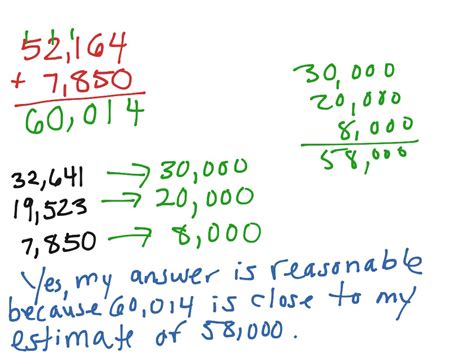 1 1 1
52,164
+ 7,850
60,014
30,000
20,000
8,000
58,000
32,641 → 30,000
19,523 → 20,000
7,850 → 8,000
Yes, my answer is reasonable
because 60,014 is close to my
estimate of 58,000.